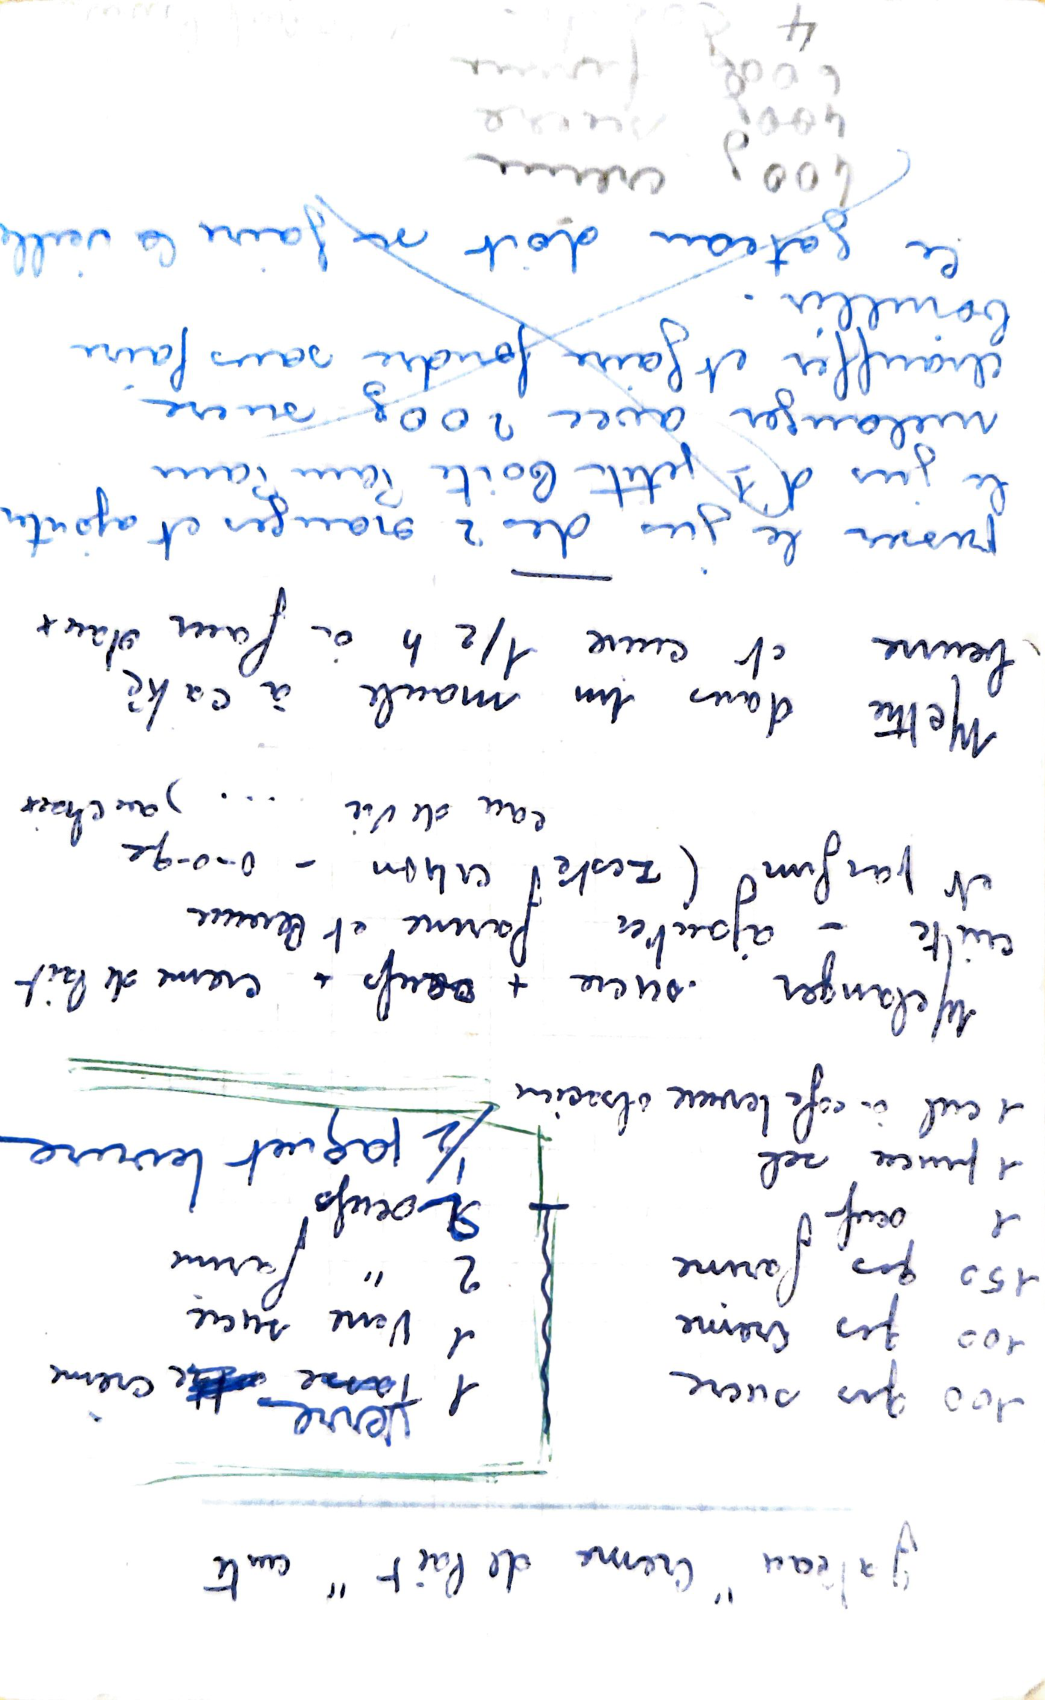 gateau "Creme de lait" cuite
100 grs sucre
100 grs creme
150 grs farine
1 oeuf
1 pincée sel
1 cuil à café levure alsacien
verre
1 tasse creme
1 verre sucre
2 " farine
2 oeufs
1/2 paquet levure
Melanger sucre + oeufs + creme de lait
cuite - ajouter farine et levure
et parfum (zeste citron - orange
eau de vie ... ) au choix
Mettre dans un moule à cake
beurré et cuire 1/2 h à four doux
presser le jus de 2 oranges et ajouter
le jus d'1 petite boite
melanger avec 200g sucre
chauffer et faire fondre sans faire
bouillir.
le gateau doit se faire la veille
400g creme
400g sucre
600g farine
4